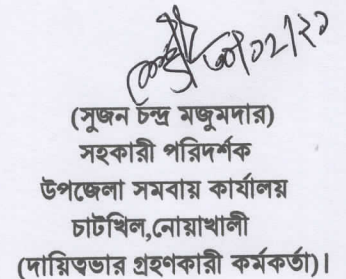 (সুজন চন্দ্র মজুমদার)
সহকারী পরিদর্শক
উপজেলা সমবায় কার্যালয়
চাটখিল,নোয়াখালী
(দায়িত্বভার গ্রহণকারী কর্মকর্তা)।